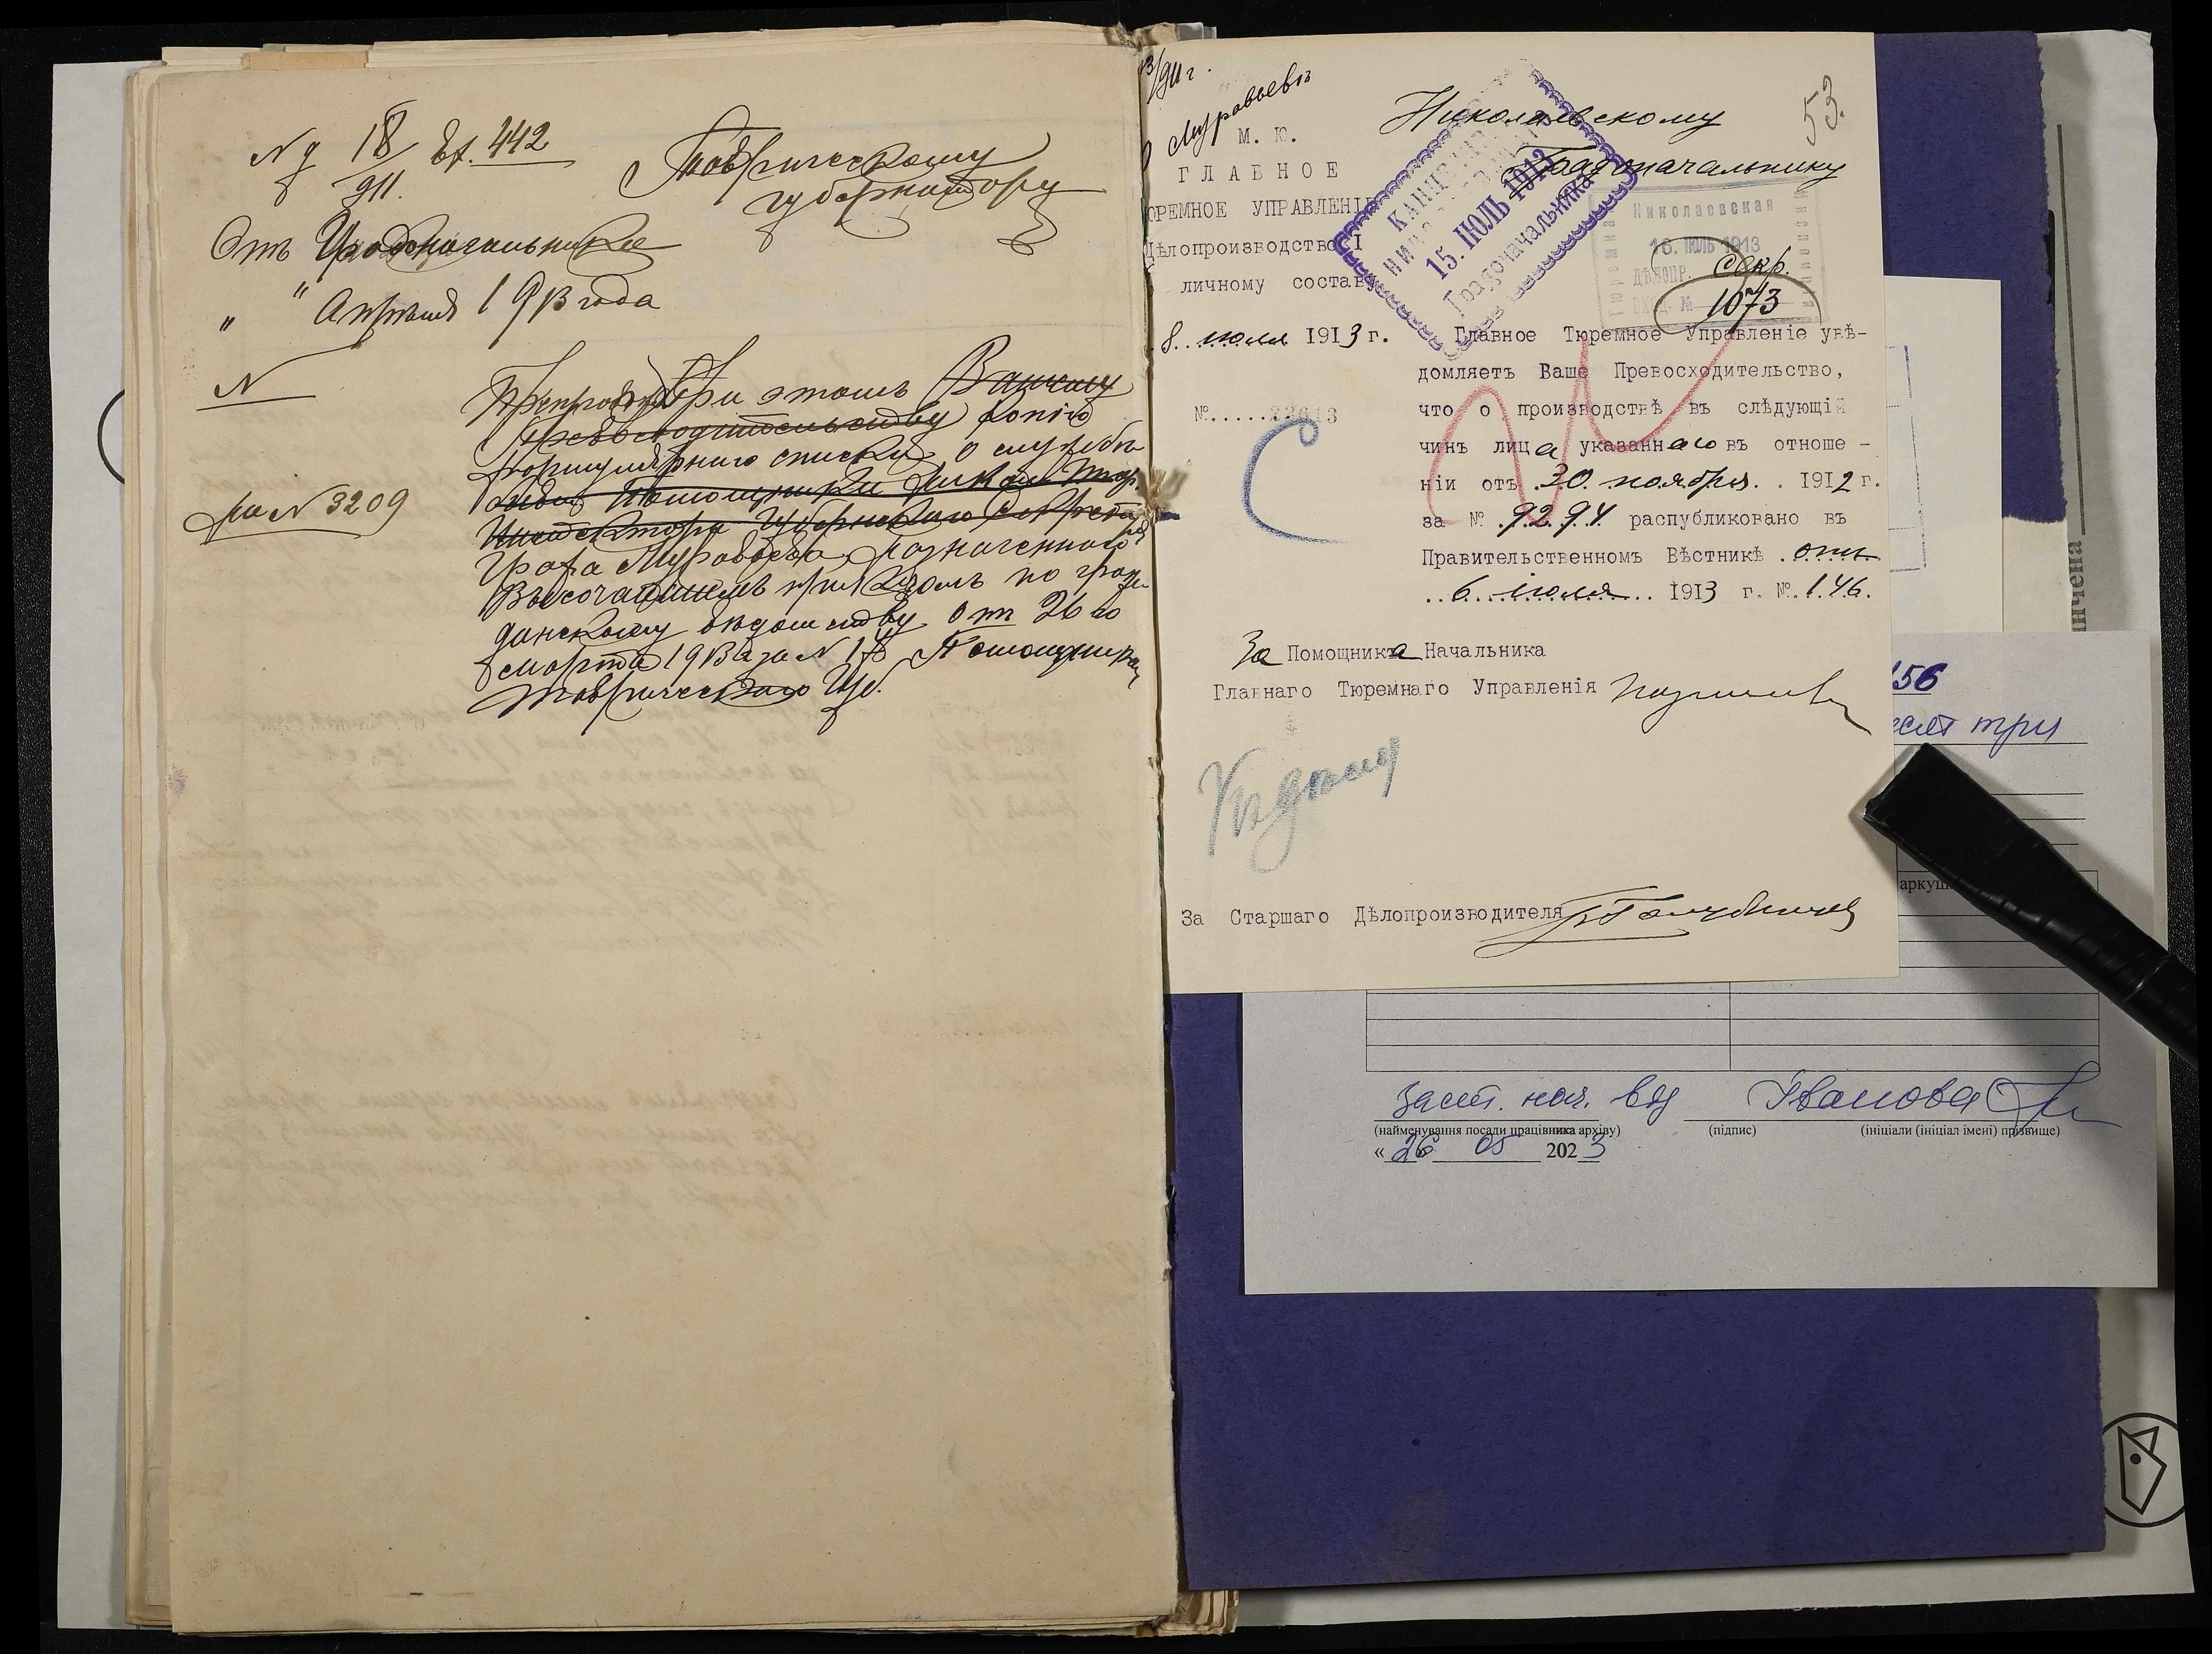 № д 18/911. Вх. 442
Таврическому
Губернатору
Отъ Градоначальника
" " Апрѣля 1913 года
№
на № 3209
Препровождая При этомъ Вашему
Превосходительству копію
формулярнаго списка о службѣ
бывш. Помощника Никол. Тюр.
Инспектора Губернскаго Секретаря
Графа Муравьева, назначеннаго
Высочайшимъ приказомъ по граж-
данскому вѣдомству от 26го
марта 1913 г. за № 18 Помощника
Таврическаго Губ.
53.
/911 г.
Муравьевъ
М. Ю.
ГЛАВНОЕ
ЮРЕМНОЕ УПРАВЛЕНІЕ
Дѣлопроизводство I
личному составу
8. июля 1913 г.
№.....23613
Николаевскому
Градоначальнику
15. ІЮЛЬ 1913
Градоначальника
Николаевская
16. ІЮЛЬ 1913
ДѢЛОПР. секр.
ВХОД. № 1073
Главное Тюремное Управленіе увѣ-
домляетъ Ваше Превосходительство,
что о производствѣ въ слѣдующій
чинъ лица указаннаго въ отноше-
ніи отъ 30 ноября. . 1912 г.
за № 9294 распубликовано въ
Правительственномъ Вѣстникѣ отъ
6. іюля 1913 г. № 146.
За Помощника Начальника
Главнаго Тюремнаго Управленія
Къ дѣлу
За Старшаго Дѣлопроизводителя
156
есят три
аркуш
инчена
заст. нач. від Іванова
(найменування посади працівника архіву) (підпис) (ініціали (ініціал імені) прізвище)
« 26 05 2023